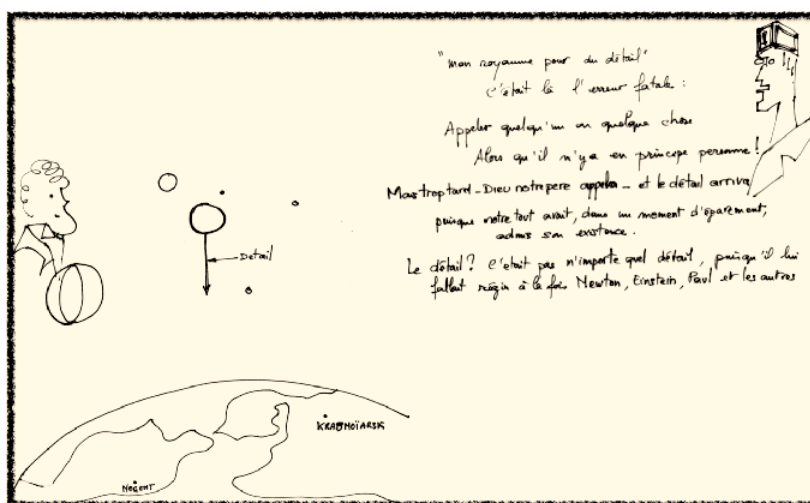 "mon royaume pour du détail"
C'était là l'erreur fatale :
Appeler quelqu'un ou quelque chose
Alors qu'il n'y a en principe personne !
Mais trop tard - Dieu notre pere appela - et le détail arriva
puisque notre tout avait, dans un moment d'égarement,
admis son existence.
Le détail ? C'etait pas n'importe quel détail, puisqu'il lui
fallait à la fois Newton, Einstein, Paul et les autres
Detail
KRASNOÏARSK
NOGENT